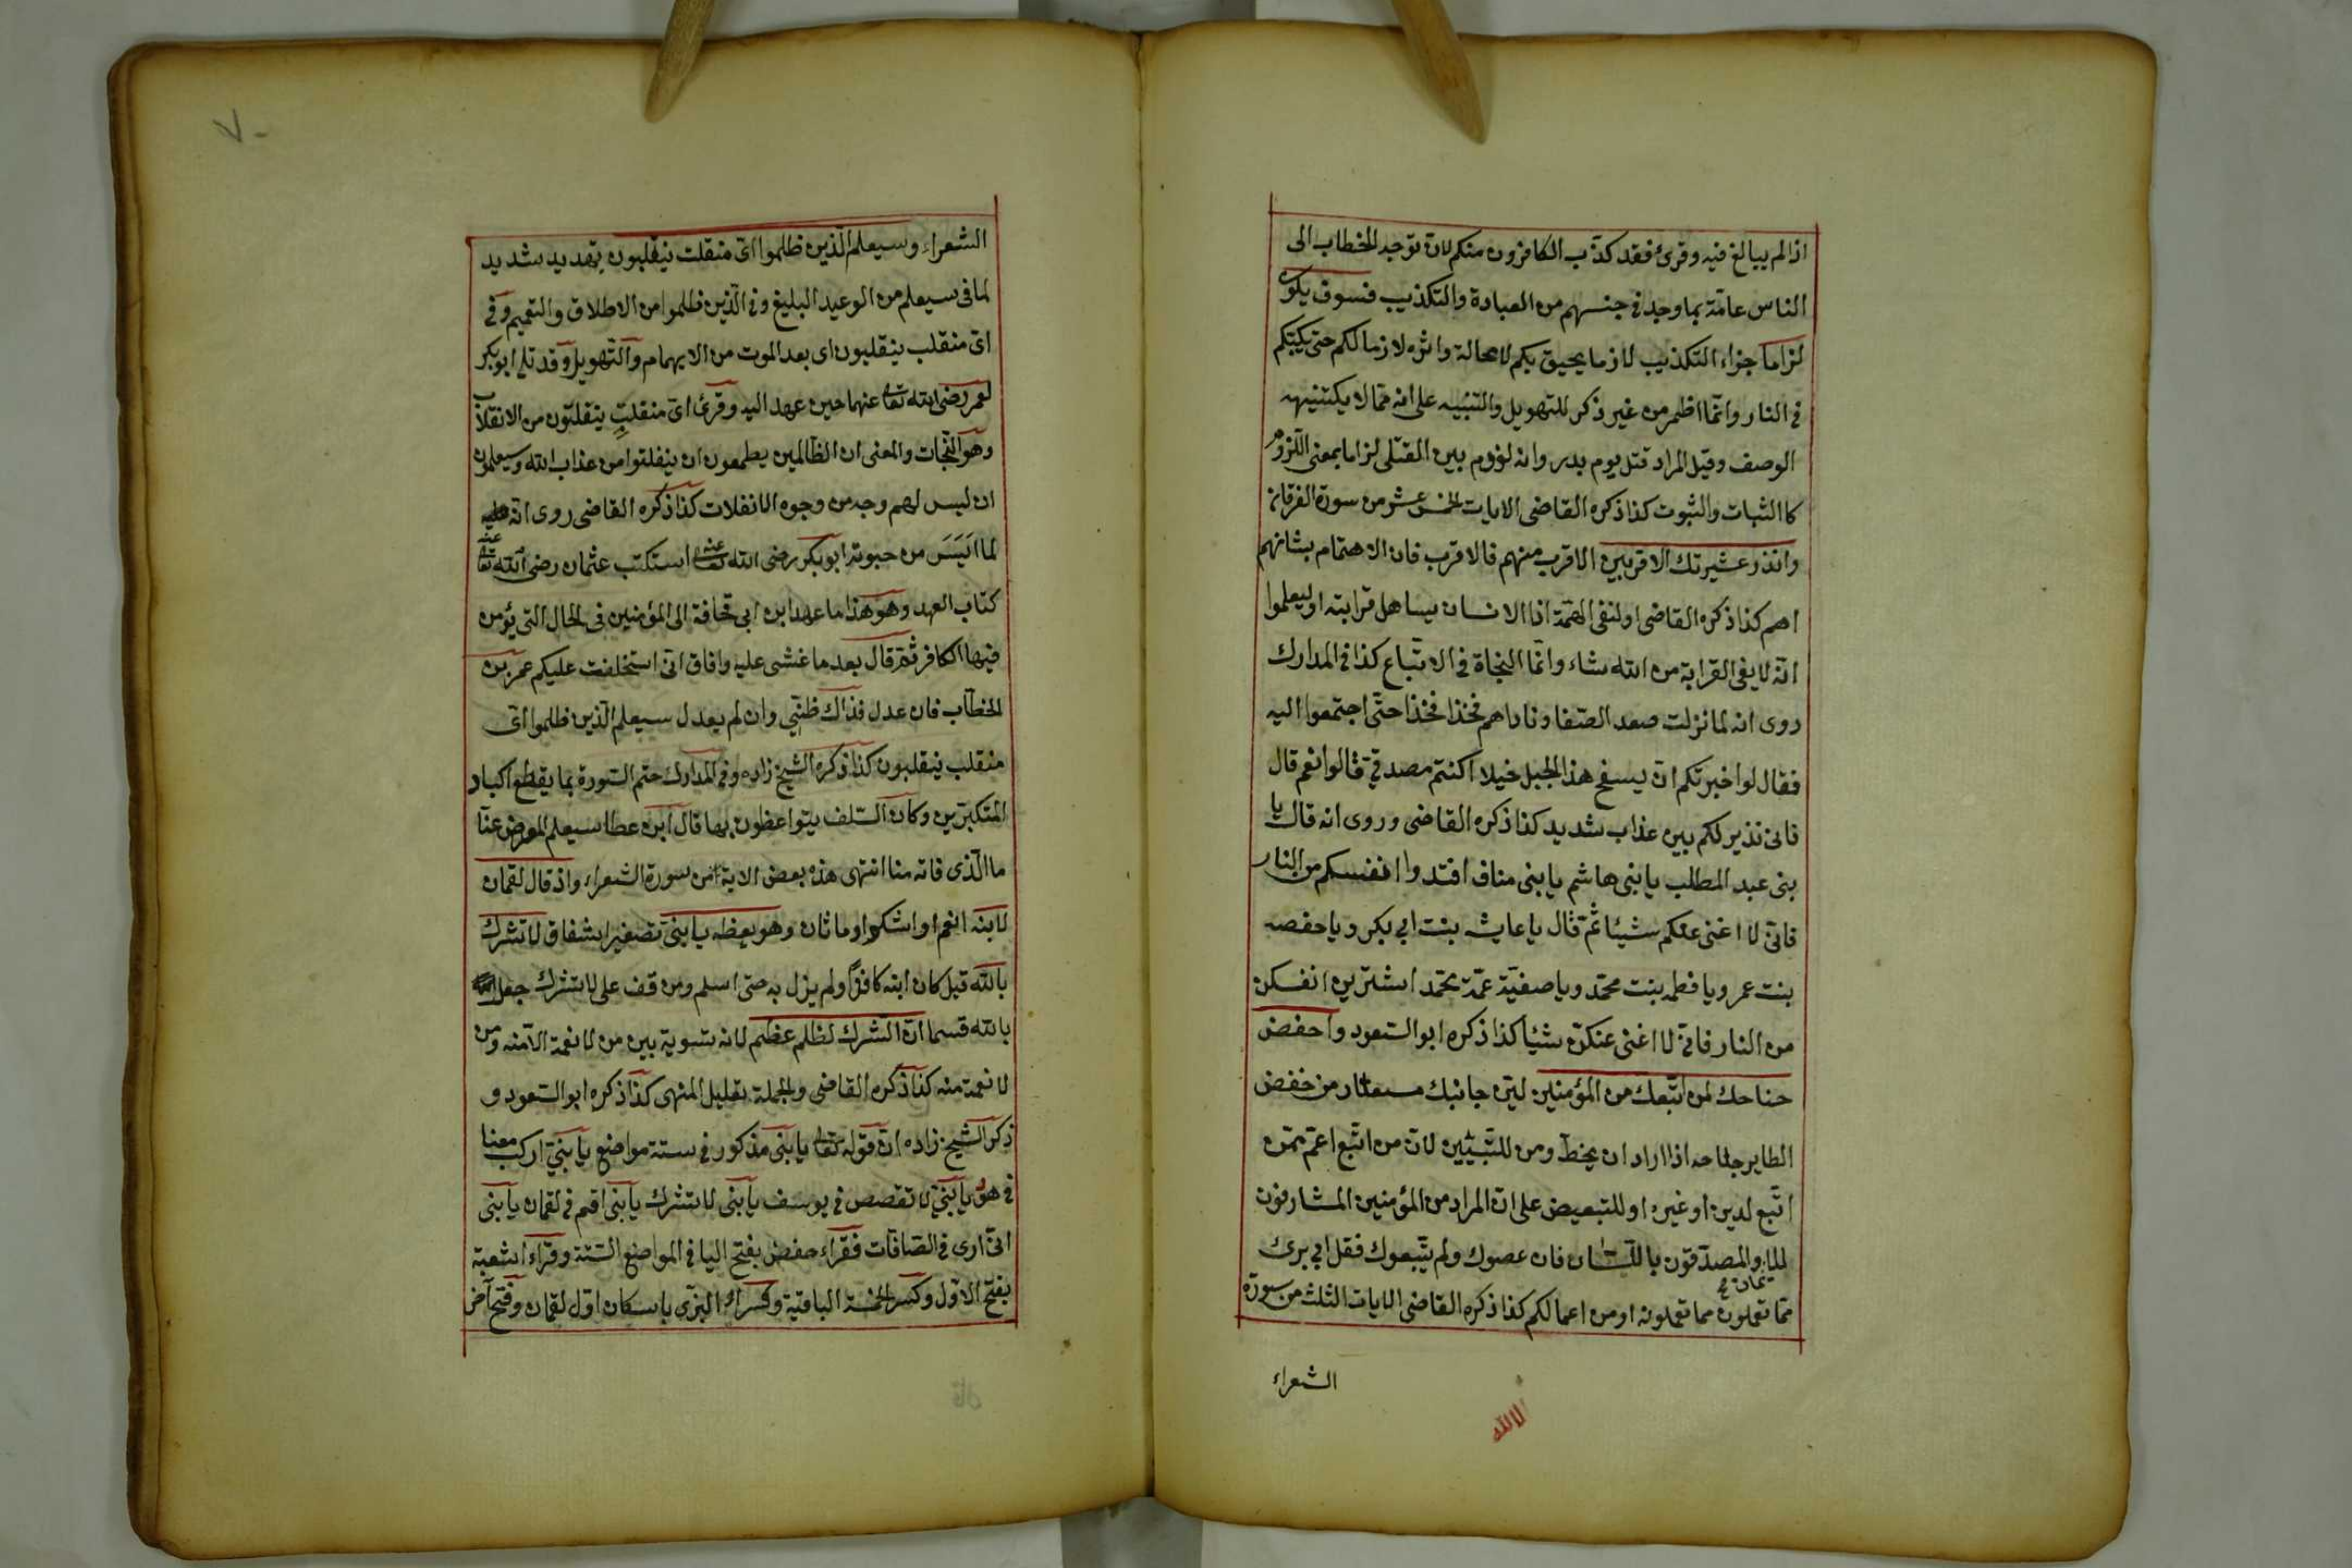 اذا لم يبالغ فيه وقرئ فقد كذب الكافرون منكم لان توجد الخطاب الى
الناس عامّة بما وجد فى جنسهم من العبادة والتكذيب فسوف يكون
لزاما جزاء التكذيب لازما يحيق بكم لا محالة واثره لازما لكم حتى يكبّكم
فى النار وانّما اظمر من غير ذكر للتهويل والتنبيه على انه ممّا لا يكتنيهه
الوصف وقيل المراد قتل يوم بدر وانه لوزم بين القتلى لزاما بمعنى اللزوم
كا الثبات والثبوت كذا ذكره القاضى الايات الخمس عشر من سورة الفرقان
وانذر عشيرتك الاقربين الاقرب منهم فالاقرب فان الاهتمام بشانهم
اهم كذا ذكره القاضى او لنفى الهمّة اذا الانسان يساهل قرابته او ليعلموا
انّه لا يغى القرابة من الله شاء وانّما النجاة فى الاتّباع كذا فى المدارك
روى انه لما نزلت صعد الصّفا وناداهم فخذا فخذا حتى اجتمعوا اليه
فقال لو اخبرتكم انّ بسفح هذا الجبل خيلا اكنتم مصدقىّ قالوا نعم قال
فانى نذير لكم بين عذاب شديد كذا ذكره القاضى وروى انه قال يا
بنى عبد المطلب يا بنى هاشم يا بنى مناف افتدوا انفسكم من النار
فانّى لا اغنى عنكم شيئا ثم قال يا عايشه بنت ابى بكر ويا حفصه
بنت عمر ويا فطمه بنت محمّد ويا صفيّة عمّة محمّد اشترين انفسكن
من النار فانى لا اغنى عنكنّ شيئا كذا ذكره ابو السّعود واخفض
جناحك لمن اتّبعك من المؤمنين ليّن جانبك مستعار من خفض
الطاير جناحه اذا اراد ان يخطّ ومن للتّبيين لانّ من اتّبع اعمّ ممّن
اتّبع لدين او غيره او للتبعيض على انّ المراد من المؤمنين المشارفون
للايمان والمصدّقون باللّسان فان عصوك ولم يتّبعوك فقل انى برئ
ممّا تعملون مما تعملونه او من اعمالكم كذا ذكره القاضى الايات الثلث من سورة
الشعراء
الشعراء وسيعلم الّذين ظلموا اىّ منقلب ينقلبون تهديد شديد
لما فى سيعلم من الوعيد البليغ وفى الّذين ظلموا من الاطلاق والتعميم وفى
اىّ منقلب ينقلبون اى بعد الموت من الايهام والتّهويل وقد تلى ابو بكر
لعمر رضى الله تعالى عنهما حين عهد اليه وقرئ اىّ منفلتٍ ينفلتون من الانفلات
وهو النّجات والمعنى ان الظّالمين يطمعون ان ينفلتوا من عذاب الله وسيعلمون
ان ليس لهم وجه من وجوه الانفلات كذا ذكره القاضى روى انّه
لما اَيَسَ من حيوته ابو بكر رضى الله تعالى عنه استكتب عثمان رضى الله تعالى عنه
كتاب العهد وهو هذا ما عهد ابن ابى قحافة الى المؤمنين فى الحال التى يؤمن
فيها الكافر ثمّ قال بعد ما غشى عليه وافاق انّى استخلفت عليكم عمر بن
الخطّاب فان عدل فذاك ظنّى وان لم يعدل سيعلم الّذين ظلموا اىّ
منقلب ينقلبون كذا ذكره الشيخ زاده وفى المدارك ختم السّورة بما يقطع اكباد
المتكبّرين وكان السّلف يتواعظون بها قال ابن عطا سيعلم المعرض عنّا
ما الّذى فاته منا انتهى هذه بعض الاية من سورة الشعراء واذ قال لقمان
لابنه انعم او اشكم او ماثان وهو يعظه يا بنىّ تصغير اشفاق لا تشرك
بالله قيل كان ابنه كافرًا ولم يزل به حتى اسلم ومن قف على لا تشرك جعل
بالله قسما انّ الشّرك لظلم عظيم لانه تسوية بين من لا نعمة الا منه ومن
لا نعمة منه كذا ذكره القاضى والجملة تعليل المنهى كذا ذكره ابو السّعود و
ذكر الشّيخ زاده انّ قوله تعالى يا بنى مذكور فى ستة مواضع يا بنىّ اركب معنا
فى هود يا بنىّ لا تقصص فى يوسف يا بنى لا تشرك يا بنى اقم فى لقمان يا بنى
انّى ارى فى الصّافّات فقراء حفص بفتح اليا فى المواضع السّتة وقراء شعبة
بفتح الاوّل وكسر الخمسة الباقية وقراء البزّى باسكان اوّل لقمان وفتح آخر